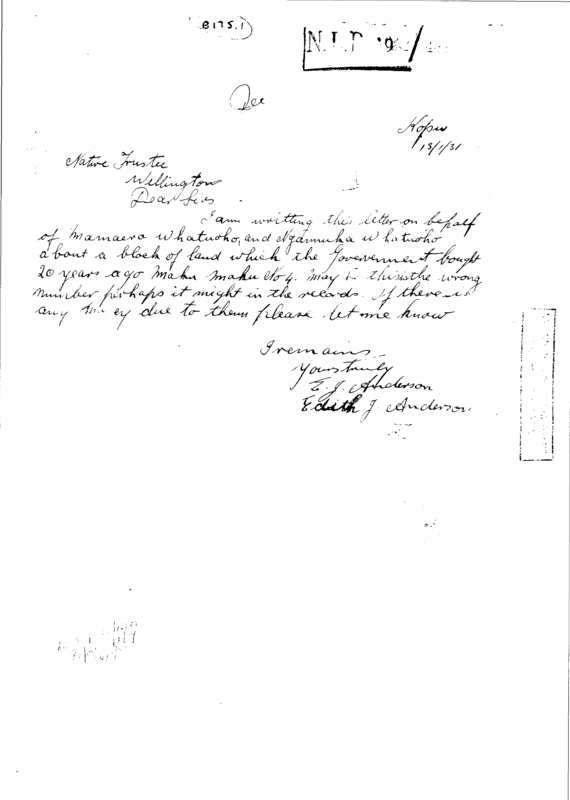 B175.1)
N.L.P.
Dec
Kopu
13/1/31
Native Trustee
Wellington
Dear Sirs
I am writting this letter on behalf
of Mamaera Whatuoho, and Ngamuka Whatuoho
about a block of land which the Goverement bought
20 years ago Maku Maku No 4. May be this is the wrong
number perhaps it might in the records. If there is
any due to them please let me know
I remains
Yours truly
E. J. Anderson
Edith J. Anderson.